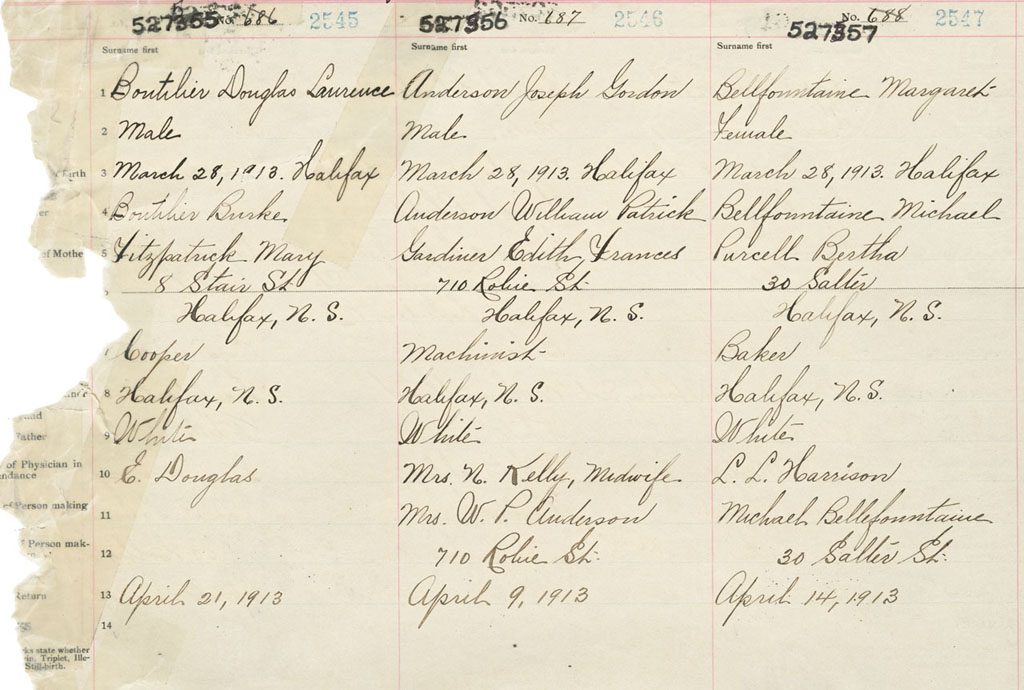 527355 No. 686 2545
527356 No. 687 2546
527357 No. 688 2547
Surname first Surname first Surname first
1 Boutilier Douglas Laurence Anderson Joseph Gordon Bellfountaine Margaret
2 Male Male Female
Birth 3 March 28, 1913. Halifax March 28, 1913. Halifax March 28, 1913. Halifax
4 Boutilier Burke Anderson William Patrick Bellfountaine Michael
of Mothe 5 Fitzpatrick Mary Gardiner Edith Frances Purcell Bertha
8 Stair St. 710 Robie St. 30 Salter
Halifax, N. S. Halifax, N. S. Halifax, N. S.
Cooper Machinist Baker
8 Halifax, N. S. Halifax, N. S. Halifax, N. S.
Father 9 White White White
of Physician in
ndance 10 E. Douglas Mrs. N. Kelly, Midwife L. L. Harrison
of Person making
11 Mrs. W. P. Anderson Michael Bellefountaine
Person mak-
12 710 Robie St. 30 Salter St.
Return 13 April 21, 1913 April 9, 1913 April 14, 1913
14
ks state whether
in, Triplet, Ille-
Still-birth.